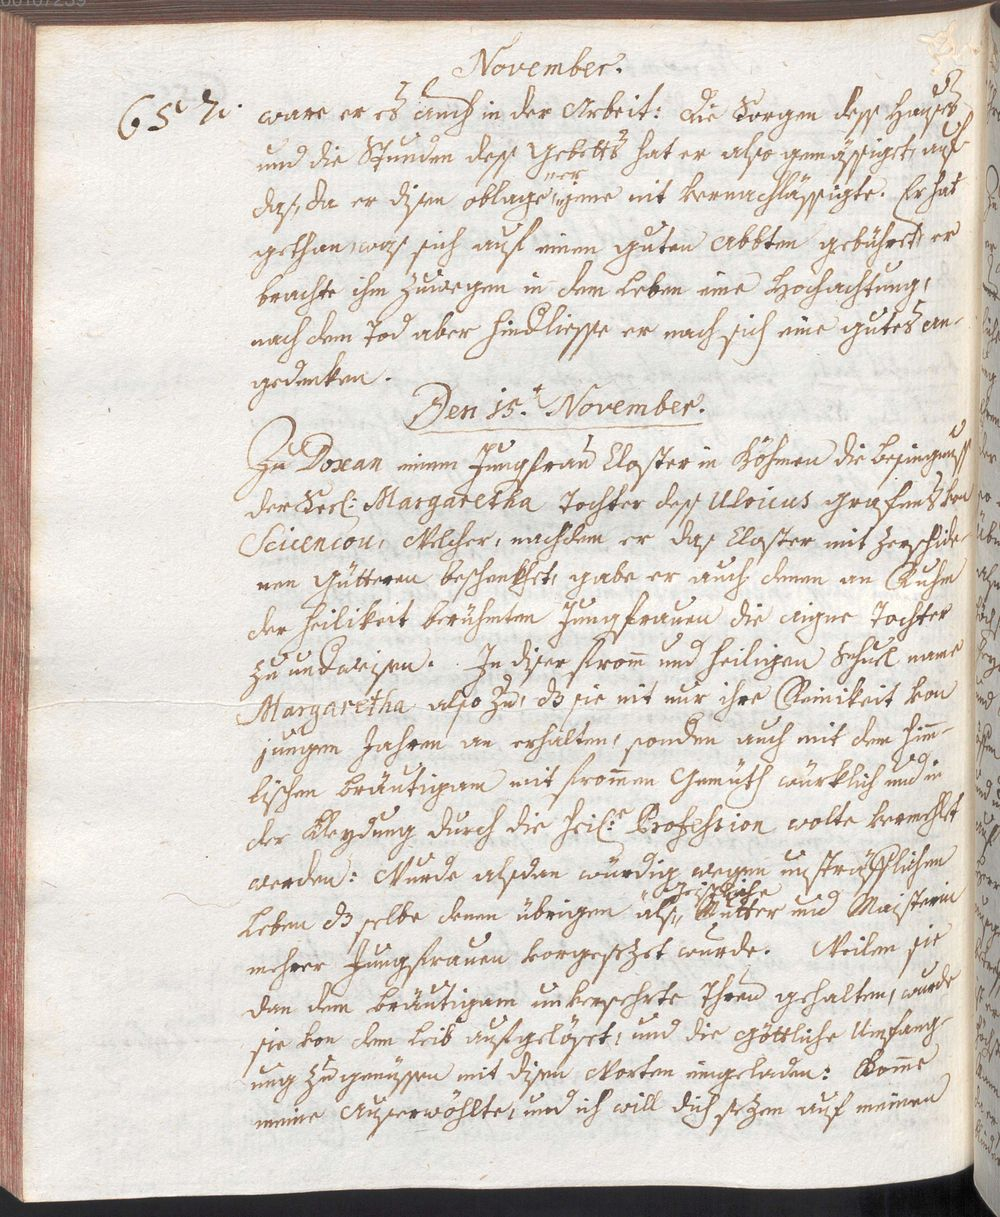 November.
652. ware er es auch in der Arbeit: die Sorgen dess Hauses
und die Stunden dess Gebetts hat er also gemässiget, auf
das, da er disen oblage, jener nit vernachlässigte. Er hat
gethan, was sich auf einen guten Abbten gebühret, er
brachte ihm zuwegen in dem Leben eine Hochachtung,
nach dem Tod aber hindliesse er nach sich eine gutes an-
gedenken.
Den 15.t November.
Zu Doxan einem Jungfrau Closter in Böhmen die besingnuss
der Seel: Margaretha Tochter dess Ulricus grafens von
Welcher, nachdem er das Closter mit verschide-
nen Gütteren beschenkhet, gabe er auch denen an Ruhm
der heilikeit berühmten Jungfrauen die aigne Tochter
zu undweisen. In diser from und heiligen Schuel name
Margaretha also zu, dz sie nit nur ihre Reinikeit von
jungen Jahren an erhalten, sonden auch mit dem him-
lischen bräutigam mit frommen Gemüth würklich und in
der Kleydung durch die heil: Profession wolte vermehlet
werden: Wurde alsdan würdig wegen unsträfflichen
Leben dz selbe denen übrigen als geistliche Mutter und Maisterin
mehrer Jungfrauen vorgesezet wurde. Weilen sie
dan dem bräutigam unversehrte Threu gehalten, wurde
sie von dem Leib aufgelöset, und die göttliche Umfang-
ung zu genüssen mit disen Worten eingeladen: Komme
meine Auserwöhlte, und ich will dich sezen auf meinen